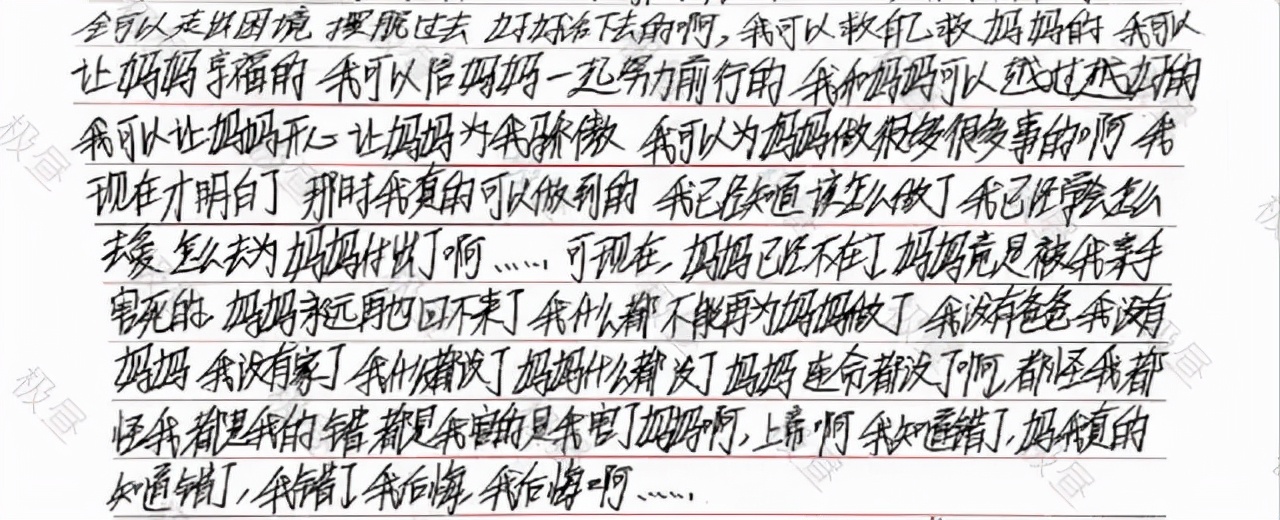 全可以走出困境 摆脱过去 好好活下去的啊,我可以救自己救妈妈的 我可以
让妈妈享福的 我可以陪妈妈一起努力前行的 我和妈妈可以越过越好的
我可以让妈妈开心 让妈妈为我骄傲 我可以为妈妈做很多很多事的啊 我
现在才明白了 那时我真的可以做到的 我已经知道该怎么做了 我已经学会怎么
去爱 怎么去为妈妈付出了啊……可现在,妈妈已经不在了 妈妈竟是被我亲手
害死的 妈妈永远再也回不来了 我什么都不能再为妈妈做了 我没有爸爸 我没有
妈妈 我没有家了 我什么都没了 妈妈什么都没了 妈妈连命都没了啊,都怪我都
怪我 都是我的错 都是我害的 是我害了妈妈啊,上帝啊 我知道错了,妈我真的
知道错了,我错了 我后悔 我后悔啊……
极昼
极昼
极昼
极昼